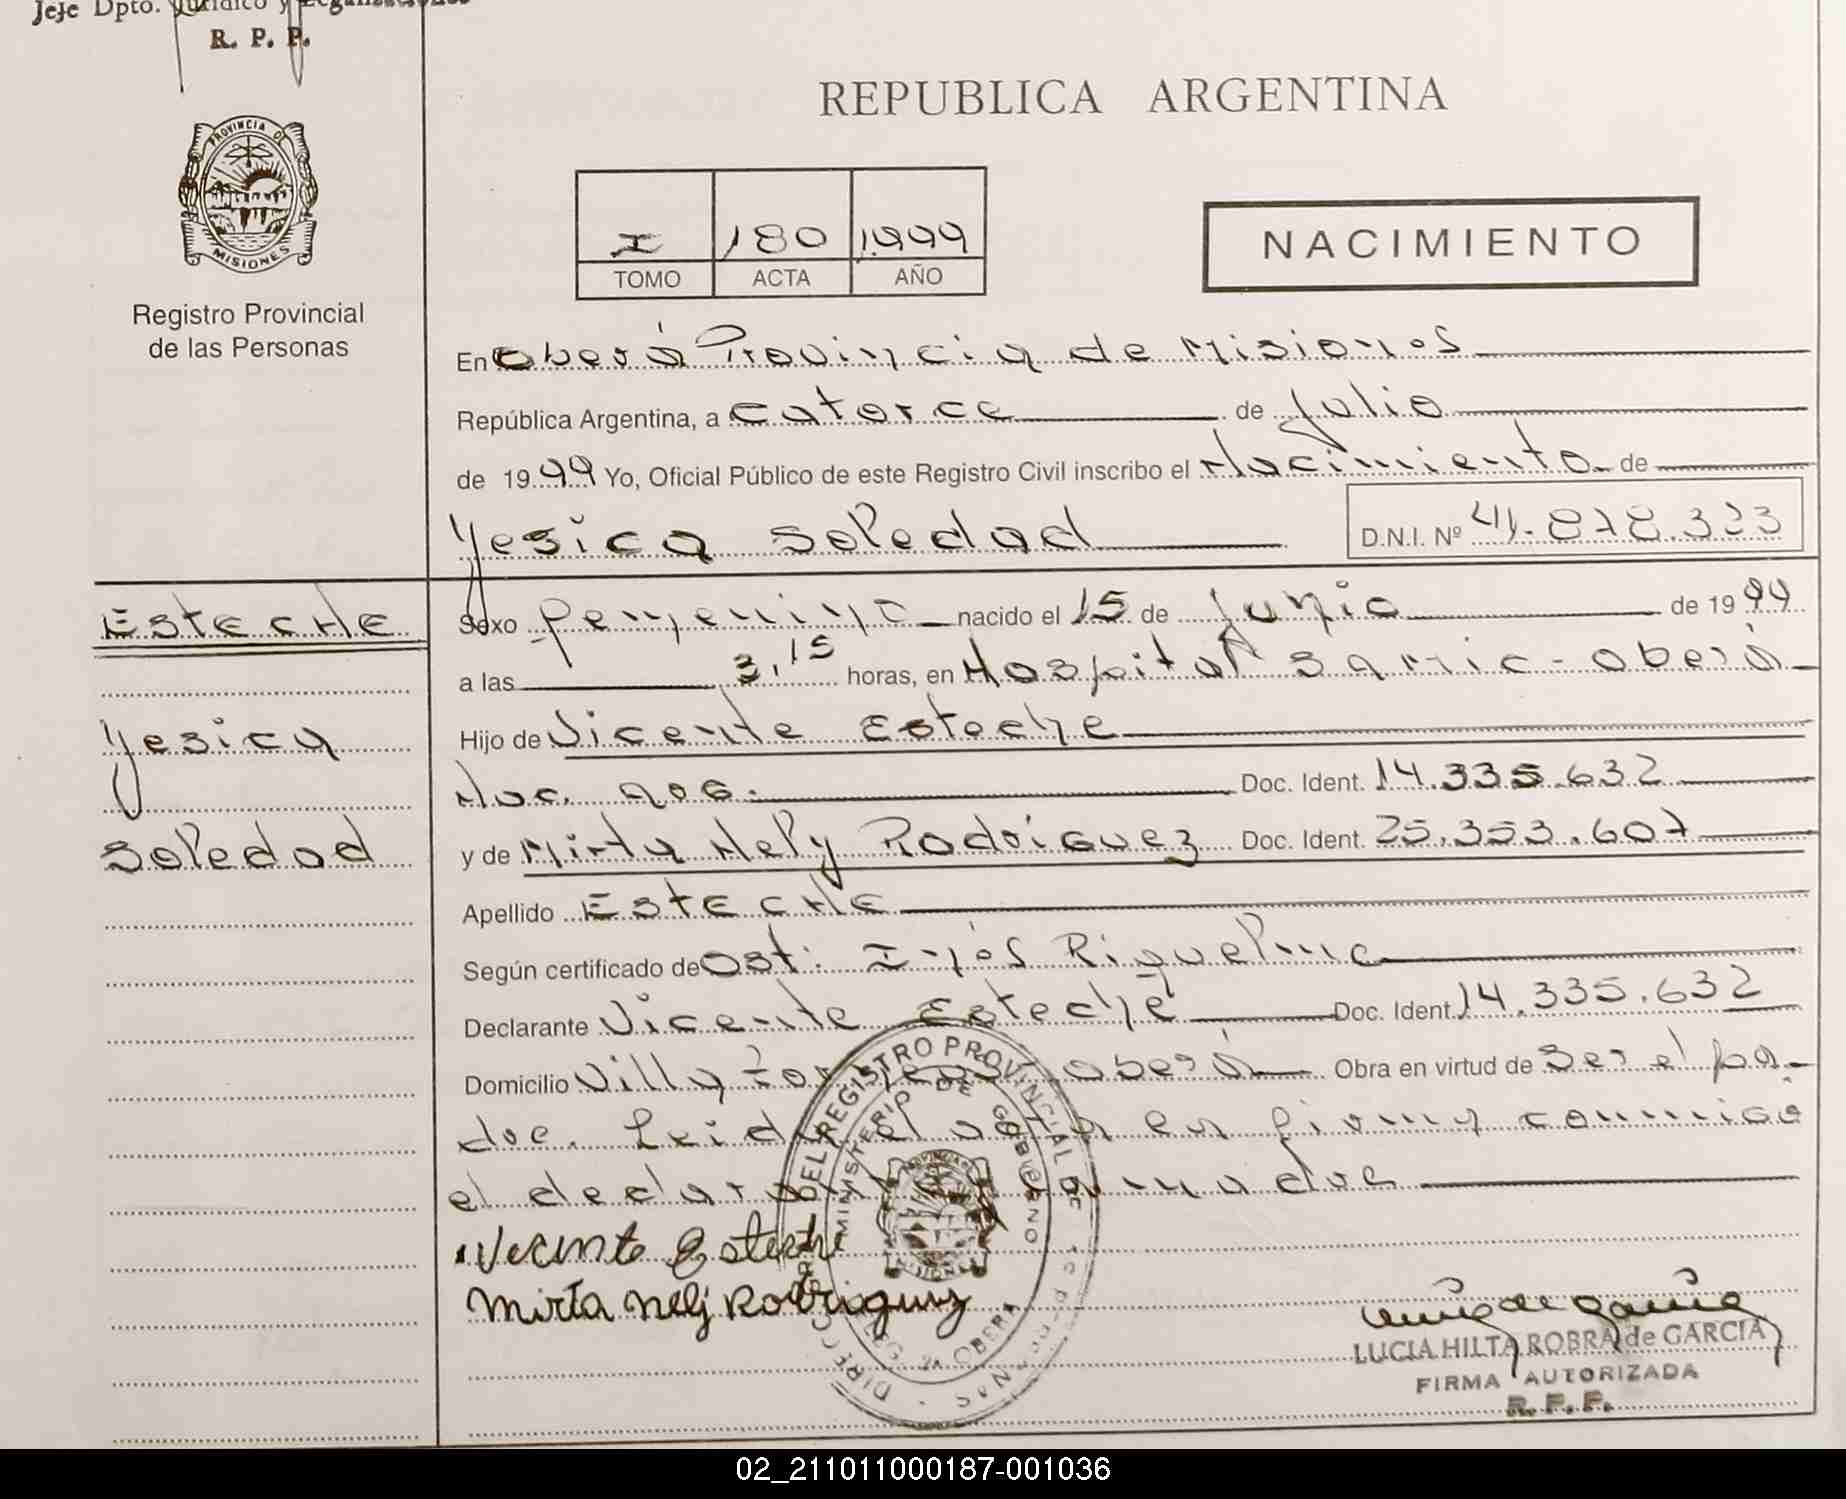 Jefe Dpto. Jurídico y Legalizaciones
R. P. P.
PROVINCIA DE
MISIONES
Registro Provincial
de las Personas
REPUBLICA ARGENTINA
I 180 1.999
TOMO ACTA AÑO
NACIMIENTO
En Oberá Provincia de Misiones
República Argentina, a catorce de Julio
de 1999 Yo, Oficial Público de este Registro Civil inscribo el Nacimiento de
Yesica Soledad
D.N.I. Nº 41.878.323
ESTECHE
Yesica
Soledad
Sexo Femenino nacido el 15 de Junio de 1999
a las 3,15 horas, en Hospital Samic - Oberá
Hijo de Vicente Esteche
Nac. arg. Doc. Ident. 14.335.632
y de Mirta Nely Rodriguez Doc. Ident. 25.353.607
Apellido ESTECHE
Según certificado de Ost: Inés Riquelme
Declarante Vicente Esteche Doc. Ident. 14.335.632
Domicilio Villa Oberá Obra en virtud de ser el pa-
dre. Leida el acta en firma conmigo
el declarante madre
Vicente Esteche
Mirta Nelj Rodriguez
DEL REGISTRO PROVINCIAL DE
MINISTERIO DE GOBIERNO
PROVINCIA
MISIONES
OBERA
LUCIA HILTA ROBRA de GARCIA
FIRMA AUTORIZADA
R. P. P.
02_211011000187-001036